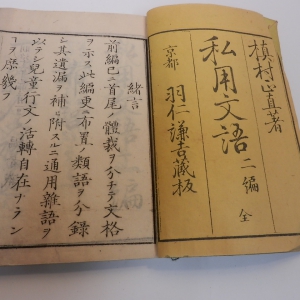 槙村正直著
私用文語 二編 全
京都 羽仁謙吉蔵板
緒言
前編已ニ首尾ノ體裁ヲ分チテ文格
ヲ示ス此編更ニ布置ノ類語ヲ分録
シ其遺漏ヲ補ヒ附スルニ通用雜語ヲ
以ラシ兒童行文ノ活轉自在ナラン
コヲ庶幾ヲ